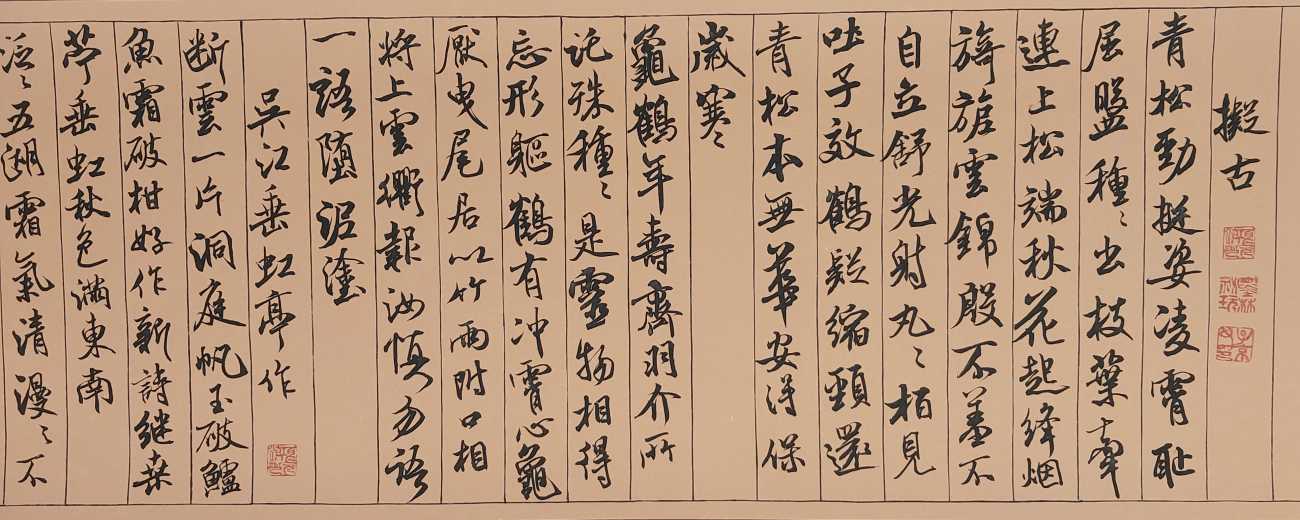 擬古
青松勁挺姿凌霄耻
屈盤種〻出枝葉牽
連上松端秋花起絳烟
旖旎雲錦殷不羞不
自立舒光射丸〻柏見
吐子效鶴疑縮頸還
青松本無華安得保
歲寒〻
龜鶴年壽齊羽介所
託殊種〻是靈物相得
忘形軀鶴有冲霄心龜
厭曳尾居以竹兩附口相
將上雲衢報汝慎勿語
一語墮泥塗
吳江垂虹亭作
断雲一片洞庭帆玉破鱸
魚霜破柑好作新詩繼桑
苧垂虹秋色滿東南
泛〻五湖霜氣清漫〻不